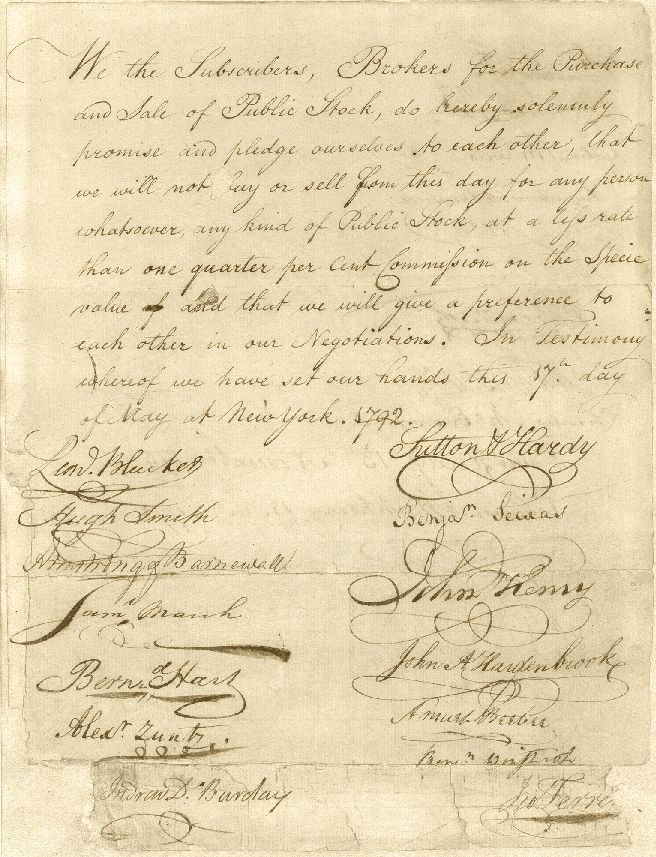 We the Subscribers, Brokers for the Purchase
and Sale of Public Stock, do hereby solemnly
promise and pledge ourselves to each other, that
we will not buy or sell from this day for any person
whatsoever, any kind of Public Stock, at a less rate
than one quarter per Cent Commission on the Specie
value of and that we will give a preference to
each other in our Negotiations. In Testimony
whereof we have set our hands this 17.th day
of May at New York. 1792.
Leond. Bleecker
Hugh Smith
Armstrong & Barnewall
Saml. March
Bernd. Hart
Alexr. Zuntz.
Andrew D. Barclay
Sutton & Hardy
Benjan. Seixas
John Henry
John A Hardenbrook
Amurt Beebee
Benn.
Ferrers